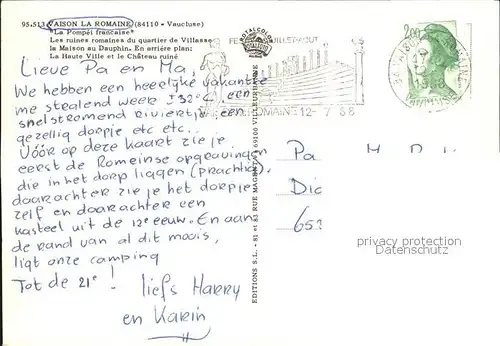 95.513 VAISON LA ROMAINE (84110 - Vaucluse)
"La Pompéi française"
Les ruines romaines du quartier de Villasse
la Maison au Dauphin. En arrière plan:
La Haute Ville et le Château ruiné
Lieve Pa en Ma,
We hebben een heerlijke vakantie
me stealend weer ±32°C, een
snelstromend riviertje, een
gezellig dorpje etc etc.
Vóór op deze kaart zie je
eerst de Romeinse opgravingen
die in het dorp liggen (prachtig),
daarachter zie je het dorpje
zelf en daarachter een
kasteel uit de 12e eeuw. En aan
de rand van al dit moois,
ligt onze camping
Tot de 21e!
liefs Harry
en Karin
EDITIONS S.L. - 81 et 83 RUE MAGENTA 69100 VILLEURBANNE
ROYALCOLOR
JUILLET-AOUT
ROMAINE 12-7 88
2,00
1988
VAUCLUSE
Pa M
Dic
65
privacy protection
Datenschutz